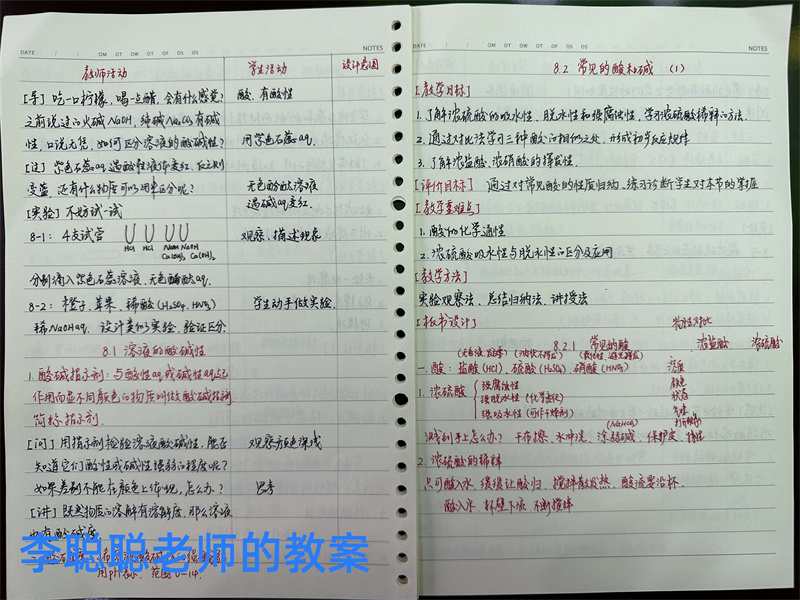 DATE / / OM OW OT OF OS OS NOTES
教师活动 学生活动 设计意图
[导] 吃一口柠檬,喝一点醋,会有什么感觉? 酸、有酸性
之前说过的火碱NaOH,纯碱Na₂CO₃有碱
性,口说无凭,如何区分溶液的酸碱性? 用紫色石蕊aq.
变蓝,还有什么物质可以用来区分呢? 无色酚酞溶液
[实验] 不妨试一试 遇碱aq变红.
8-1: 4支试管 HCl HCl NaOH NaOH 观察、描述现象
Ca(OH)₂ Ca(OH)₂
分别滴入紫色石蕊溶液、无色酚酞aq.
8-2: 橙子、苹果、稀酸(H₂SO₄、HNO₃) 学生动手做实验.
稀NaOH aq. 设计类似实验,验证区分.
8.1 溶液的酸碱性
1.酸碱指示剂:与酸性aq或碱性aq
作用而显不同颜色的物质叫做酸碱指示剂
简称指示剂.
[问] 用指示剂检验溶液酸碱性,能否 观察颜色深浅
知道它们酸性或碱性强弱的程度呢?
如果差别不能在颜色上体现,怎么办? 思考
[讲] 既然物质的溶解有溶解度,那么溶液
也有酸碱度
李聪聪老师的教案
用pH表示,范围0-14.
DATE / / OM OW OT OF OS OS NOTES
8.2 常见的酸和碱 (1)
[教学目标]
1.了解浓硫酸的吸水性、脱水性和强腐蚀性,学习浓硫酸稀释的方法.
2.通过对比法学习三种酸的相似之处,形成初步反应规律
3.了解浓盐酸、浓硝酸的挥发性.
[评价目标] 通过对常见酸的性质归纳、练习诊断学生对本节的掌握
[教学重难点]
1.酸的化学通性
2.浓硫酸吸水性与脱水性的区分及应用
[教学方法]
实验观察法、总结归纳法、讲授法
[板书设计] 物性对比
8.2.1 常见的酸 浓盐酸 浓硫酸
一.酸:盐酸(HCl)、硫酸(H₂SO₄)、硝酸(HNO₃)
1.浓硫酸 强腐蚀性 颜色
强脱水性(化学变化) 状态
强吸水性(可作干燥剂) 气味
(NaHCO₃) 打开瓶盖
溅到手上怎么办? 干布擦、水冲洗、涂弱碱、
2.浓硫酸的稀释
只可酸入水,缓缓让酸归,搅拌散发热,酸流要沿杯.
酸入水 杯壁下流 不断搅拌